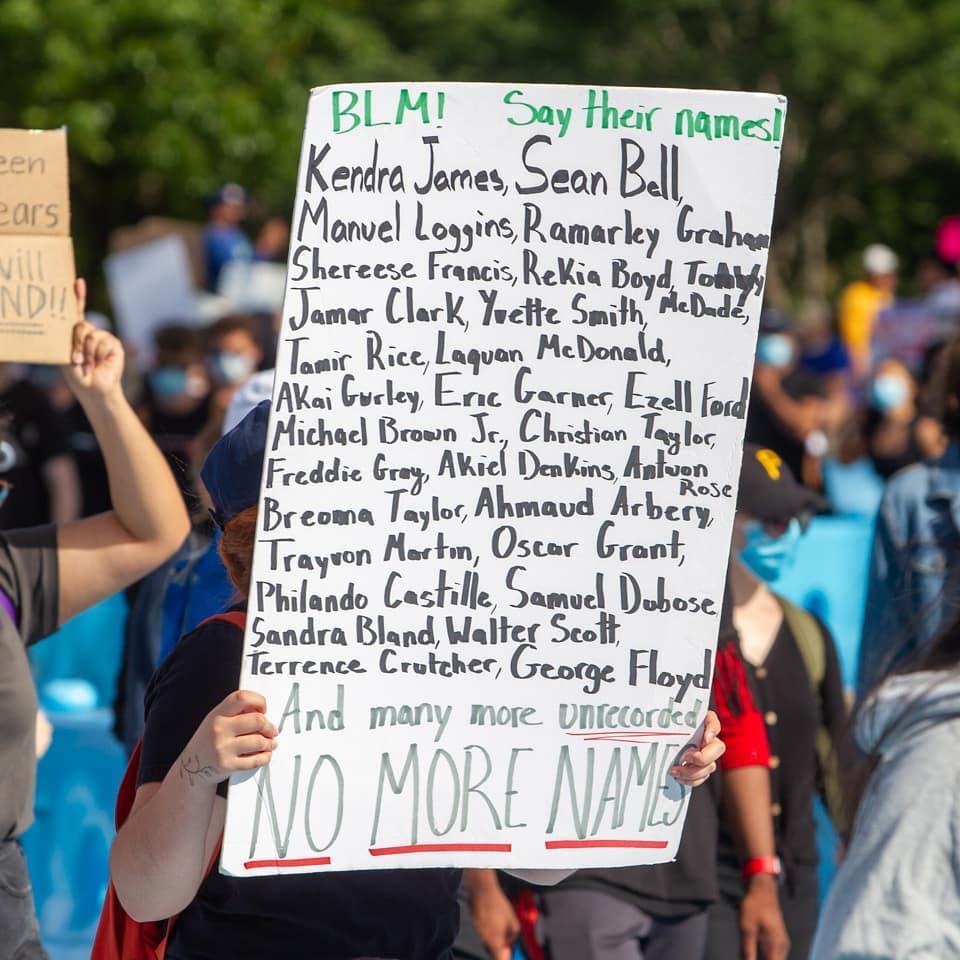 een
ears
will
ND!!
BLM! Say their names!
Kendra James, Sean Bell,
Manuel Loggins, Ramarley Graham
Shereese Francis, Rekia Boyd, Tony
McDade,
Jamar Clark, Yvette Smith,
Tamir Rice, Laquan McDonald,
Akai Gurley, Eric Garner, Ezell Ford
Michael Brown Jr., Christian Taylor,
Freddie Gray, Akiel Denkins, Antwon
Rose
Breonna Taylor, Ahmaud Arbery,
Trayvon Martin, Oscar Grant,
Philando Castille, Samuel Dubose
Sandra Bland, Walter Scott,
Terrence Crutcher, George Floyd
And many more unrecorded
NO MORE NAMES